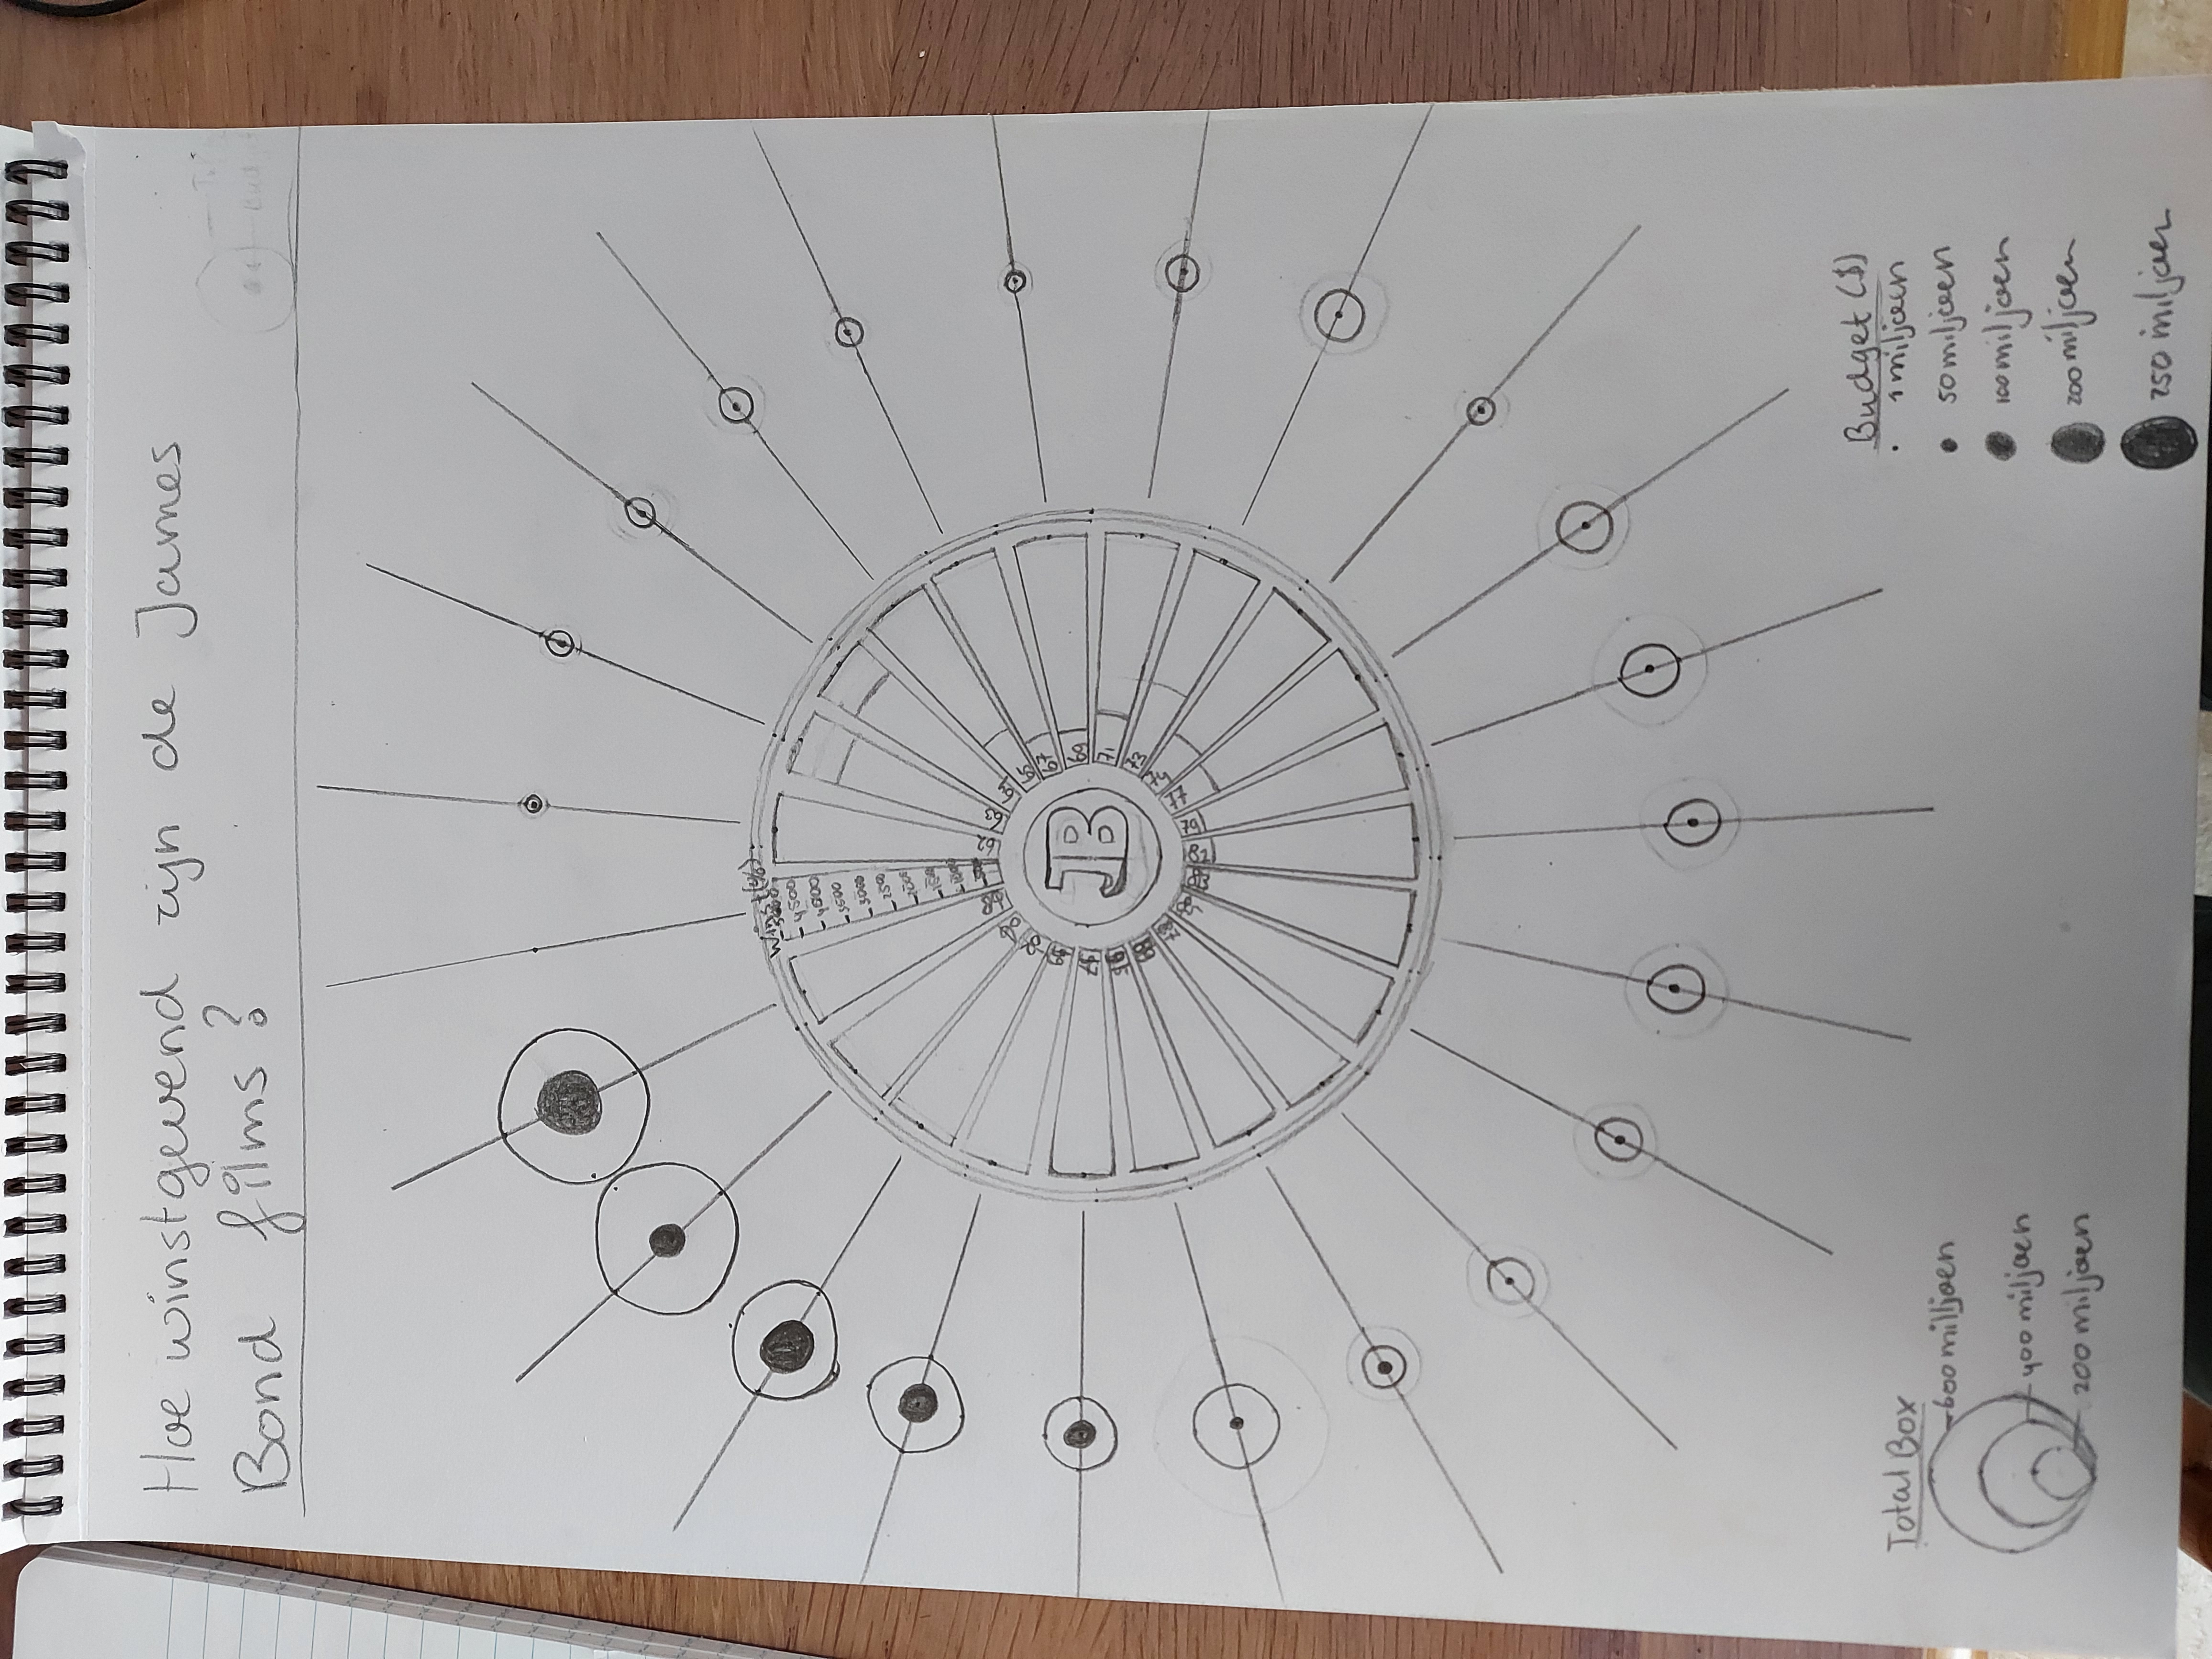 Hoe winstgevend zijn de James
Bond films?
Budget
Winst(%)
5000
4500
4000
3500
3000
2500
2000
1500
1000
500
62
63
65
67
69
71
73
74
77
79
81
83
85
87
89
95
97
99
02
06
08
JB
Total Box
600 milljoen
400 miljoen
200 miljoen
Budget ($)
1 miljoen
50 miljoen
100 miljoen
200 miljoen
250 miljoen